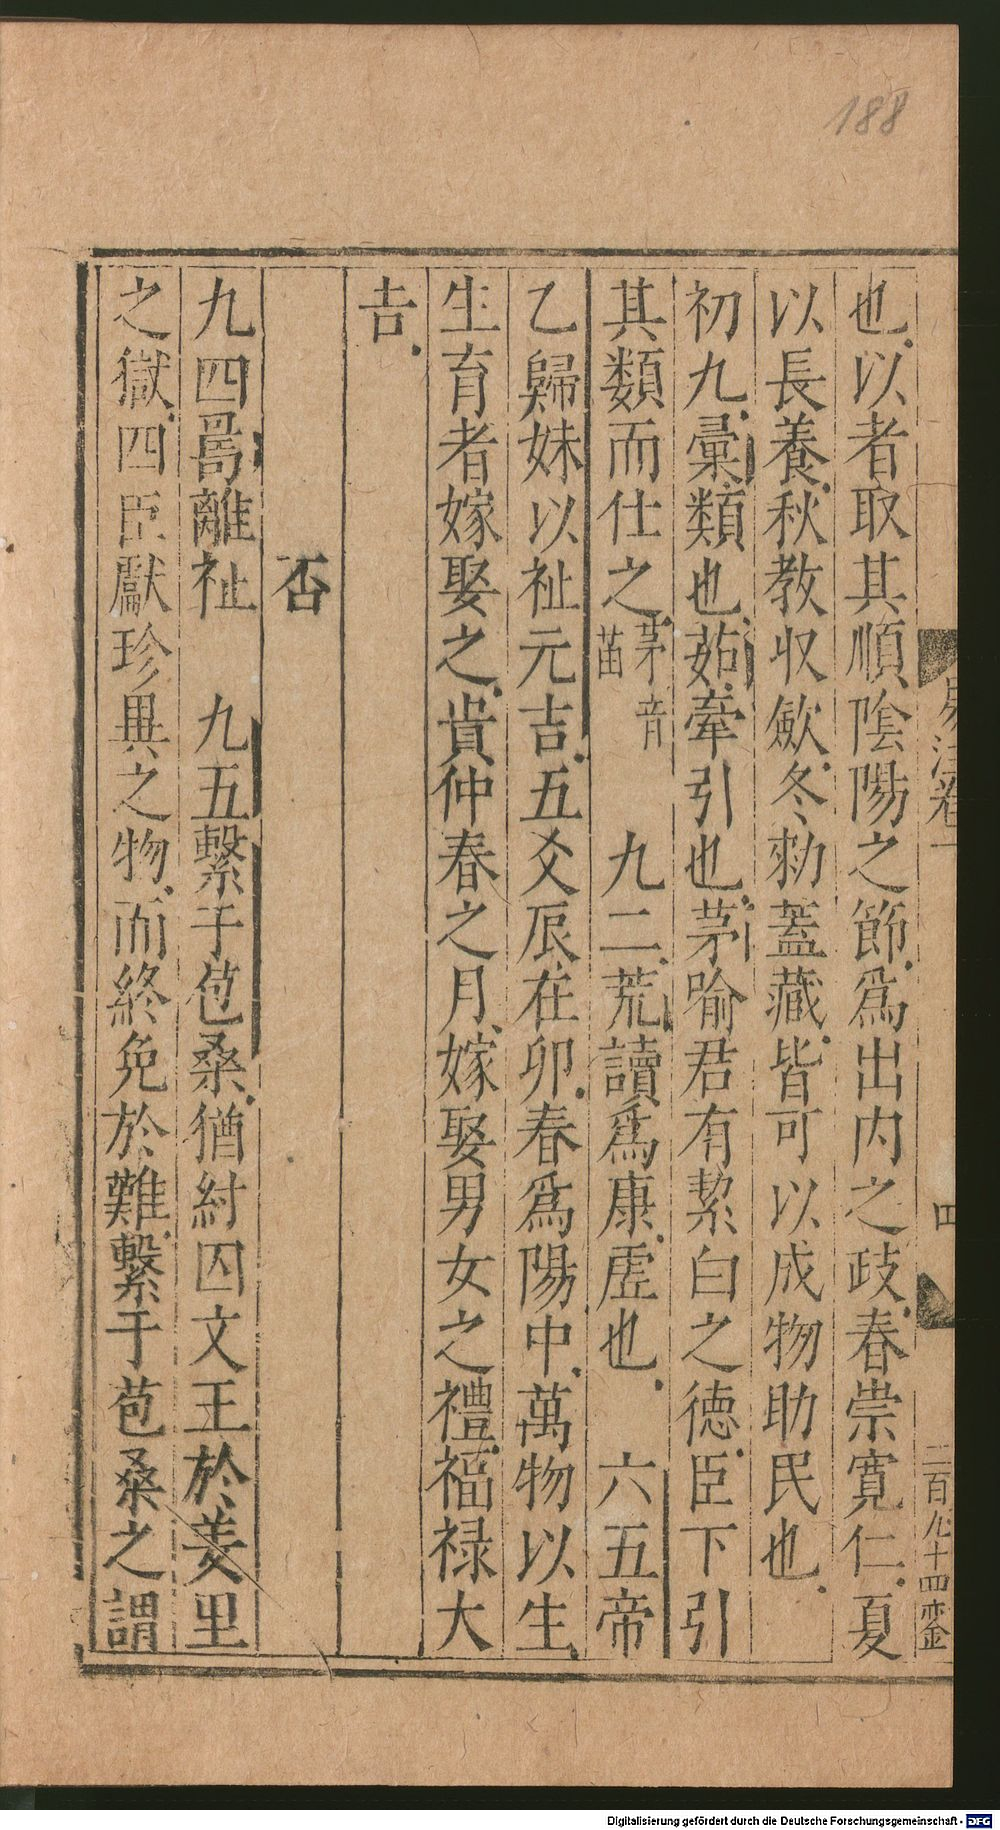 188
易注卷一
四
二百九十四
也以者取其順陰陽之節爲出内之歧春崇寛仁夏
以長養秋教収歛冬勑蓋藏皆可以成物助民也
初九彙類也茹牽引也茅喻君有絜白之德臣下引
其類而仕之茅音苗 九二荒讀爲康虛也 六五帝
乙歸妹以祉元吉五爻辰在卯春爲陽中萬物以生
生育者嫁娶之貴仲春之月嫁娶男女之禮福禄大
吉
否
九四𠷎離祉 九五繫于苞桑猶紂囚文王於羑里
之獄四臣獻珍異之物而終免於難繫于苞桑之謂
Digitalisierung gefördert durch die Deutsche Forschungsgemeinschaft - DFG